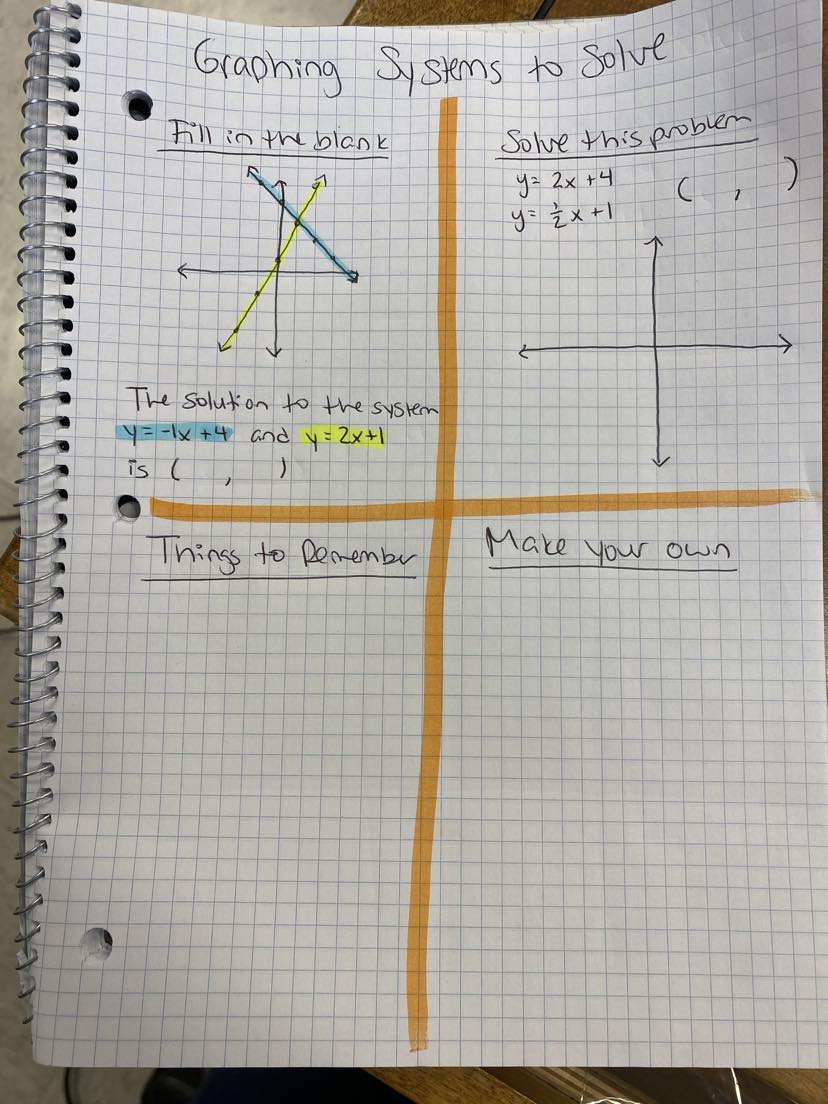 Graphing Systems to Solve
Fill in the blank
The solution to the system
y = -1x + 4 and y = 2x + 1
is ( , )
Solve this problem
y = 2x + 4
y = 1/2 x + 1
( , )
Things to Remember
Make your own